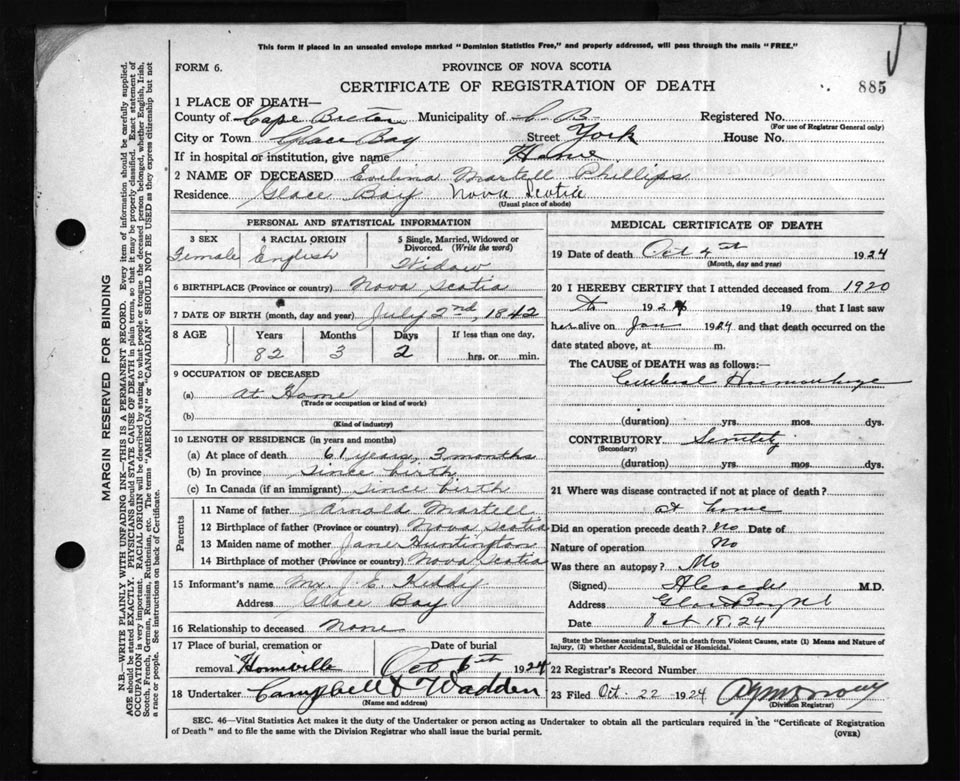 This form if placed in an unsealed envelope marked "Dominion Statistics Free," and properly addressed, will pass through the mails "FREE."
FORM 6.
PROVINCE OF NOVA SCOTIA
CERTIFICATE OF REGISTRATION OF DEATH
885
1 PLACE OF DEATH—
County of Cape Breton Municipality of C. B. Registered No.
(For use of Registrar General only)
City or Town Glace Bay Street York House No.
If in hospital or institution, give name Home
2 NAME OF DECEASED Evelina Martell Phillips
Residence Glace Bay Nova Scotia
(Usual place of abode)
PERSONAL AND STATISTICAL INFORMATION
3 SEX Female
4 RACIAL ORIGIN English
5 Single, Married, Widowed or Divorced. (Write the word) Widow
6 BIRTHPLACE (Province or country) Nova Scotia
7 DATE OF BIRTH (month, day and year) July 2nd, 1842
8 AGE Years Months Days If less than one day,
82 3 2 hrs. or min.
9 OCCUPATION OF DECEASED
(a) at Home
(Trade or occupation or kind of work)
(b)
(Kind of industry)
10 LENGTH OF RESIDENCE (in years and months)
(a) At place of death 61 years, 3 months
(b) In province since birth
(c) In Canada (if an immigrant) since birth
Parents
11 Name of father Arnold Martell
12 Birthplace of father (Province or country) Nova Scotia
13 Maiden name of mother Jane Huntington
14 Birthplace of mother (Province or country) Nova Scotia
15 Informant's name Mr. J. E. Keddy
Address Glace Bay
16 Relationship to deceased None
17 Place of burial, cremation or removal Homeville
Date of burial Oct 6th 1924
18 Undertaker Campbell & Wadden
(Name and address)
MEDICAL CERTIFICATE OF DEATH
19 Date of death Oct 4th 1924
(Month, day and year)
20 I HEREBY CERTIFY that I attended deceased from 1920
to 1924 19 that I last saw
her alive on Jan 1924 and that death occurred on the
date stated above, at m.
The CAUSE of DEATH was as follows:
Cerebral Hoemorrhage
(duration) yrs. mos. dys.
CONTRIBUTORY Senility
(Secondary)
(duration) yrs. mos. dys.
21 Where was disease contracted if not at place of death?
at home
Did an operation precede death? No Date of
Nature of operation No
Was there an autopsy? No
(Signed) M.D.
Address Glace Bay
Date Oct 18, 24
State the Disease causing Death, or in death from Violent Causes, state (1) Means and Nature of Injury, (2) whether Accidental, Suicidal or Homicidal.
22 Registrar's Record Number
23 Filed Oct. 22 1924
(Division Registrar)
SEC. 46—Vital Statistics Act makes it the duty of the Undertaker or person acting as Undertaker to obtain all the particulars required in the "Certificate of Registration
of Death" and to file the same with the Division Registrar who shall issue the burial permit.
(OVER)
MARGIN RESERVED FOR BINDING
N.B.—WRITE PLAINLY WITH UNFADING INK—THIS IS A PERMANENT RECORD. Every item of information should be carefully supplied.
AGE should be stated EXACTLY. PHYSICIANS should STATE CAUSE OF DEATH in plain terms, so that it may be properly classified. Exact statement of
OCCUPATION is very important. RACIAL ORIGIN will be described by stating to what people or tongue the deceased person belonged, whether English, Irish,
Scotch, French, German, Russian, Ruthenian, etc. The terms "AMERICAN" or "CANADIAN" SHOULD NOT BE USED as they express citizenship but not
a race or people. See instructions on back of Certificate.